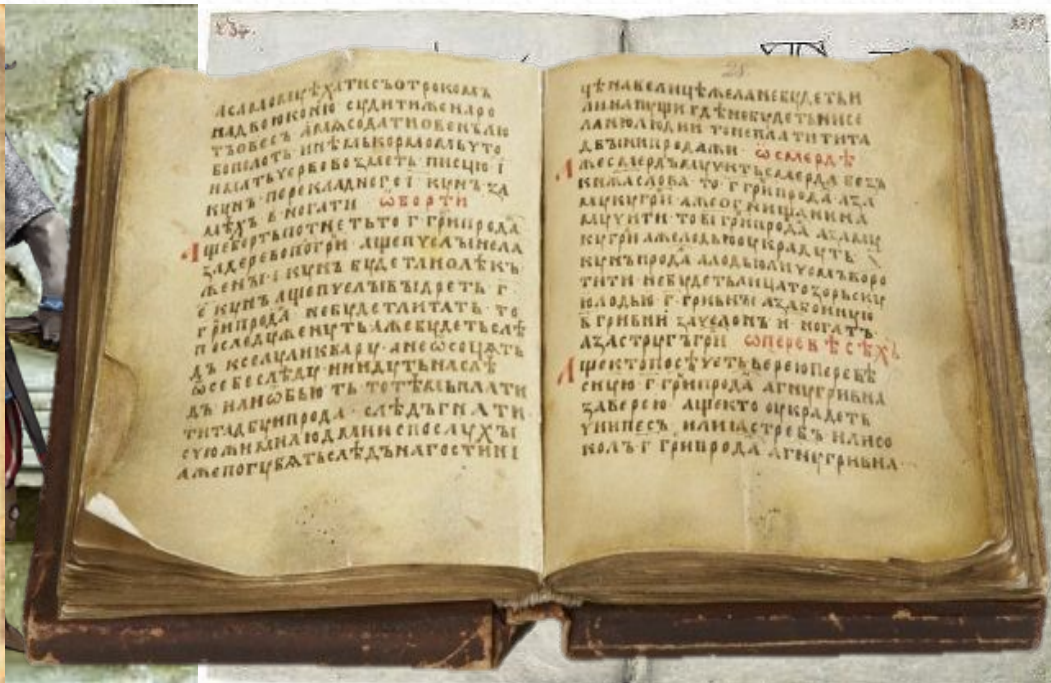 надвоюконю судитиженаро
тъовесъ амѧсодатиовенълю
бополоть инѣмькормомьбуто
кунъ перекладногоеі кунъ за
мѣхъ в ногати ѡборти
Ащебортьпотнетьто г грнпрода
задеревопогрн ащепчелымела
женъ і кунъ будетлиолѣкъ
е кунъ ащепчелывыдреть г
грнпрода небудетлитать то
последуженутьажебудетьслѣ
дъ кселуликвару анеѡсоцѧть
ѡсебеслѣду ниидутьнаслѣ
дъ илиѡбьють тотѣмьплати
титадбуипрода слѣдъгнати
сужимилюдмииспослухы
ажепогубѧтьслѣдънагостині
чѣнавелицѣжеланебудетьи
линапущигдѣнебудетьнисе
ланилюдии тонеплатитита
двынипродажи ѡсмердѣ
Ажесмердъмучитьсмердабезъ
кнжаслова то г грнпрода азл
мукугрн ажеогнищанина
мучити то ві грнпрода азаму
кугрн ажелодьюоукрадуть з
кунъпрода алодьюлицомьворо
тити небудетьлицатозаморьску
юлодью г гривны азабоиную
в гривни зачелонъ и ногатъ
азаструггрн ѡперевѣсѣхъ
Ащектопосѣчетьверевюперевѣ
сную г грнпрода агнугривна
заверею ащекто оукрадеть
учипесъ илиꙗстребъ илисо
колъ г грнпрода агнугривна